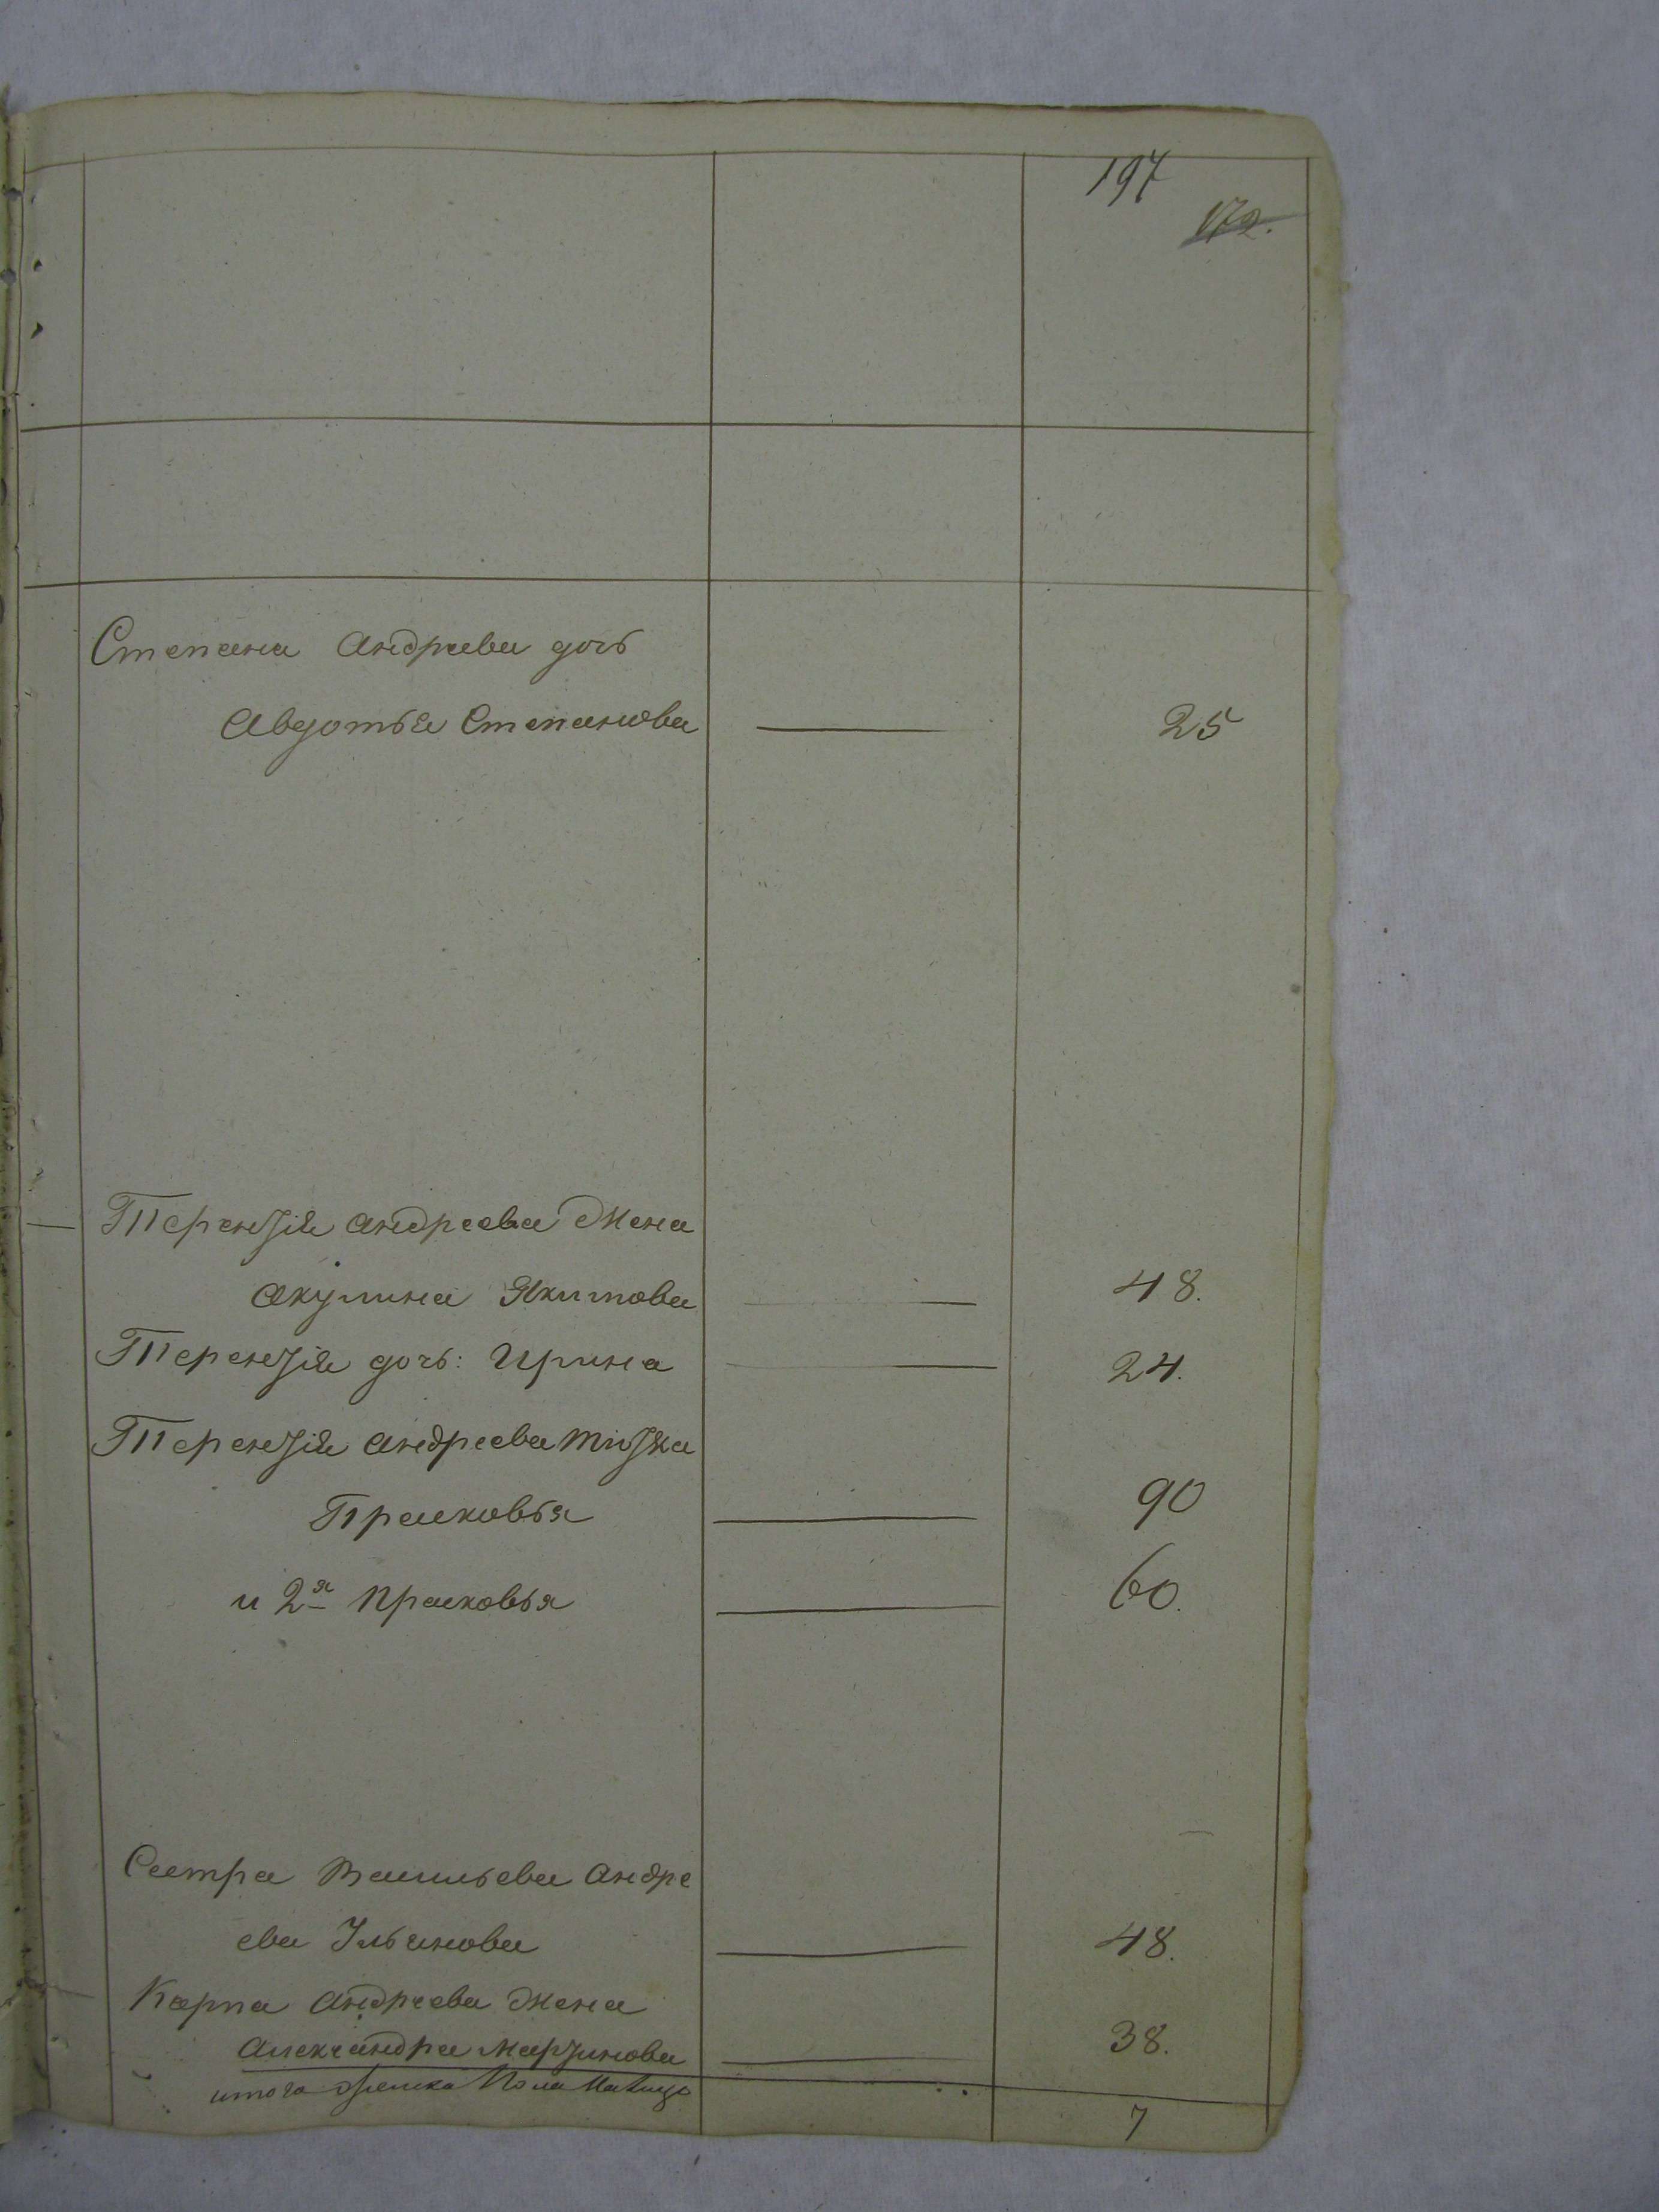 197
172.
Степана Андреева дочь
Авдотья Степанова 25
Терентiя Андреева Жена
Акулина Якимова 48.
Терентiя дочь: Ирина 24.
Терентiя Андреева тiотка
Прасковья 90
и 2я Прасковья 60.
Сестра Васильева Андре
ева 48.
Карпа Андреева Жена
Александра Мартинова 38.
итого женска Пола На лицо 7